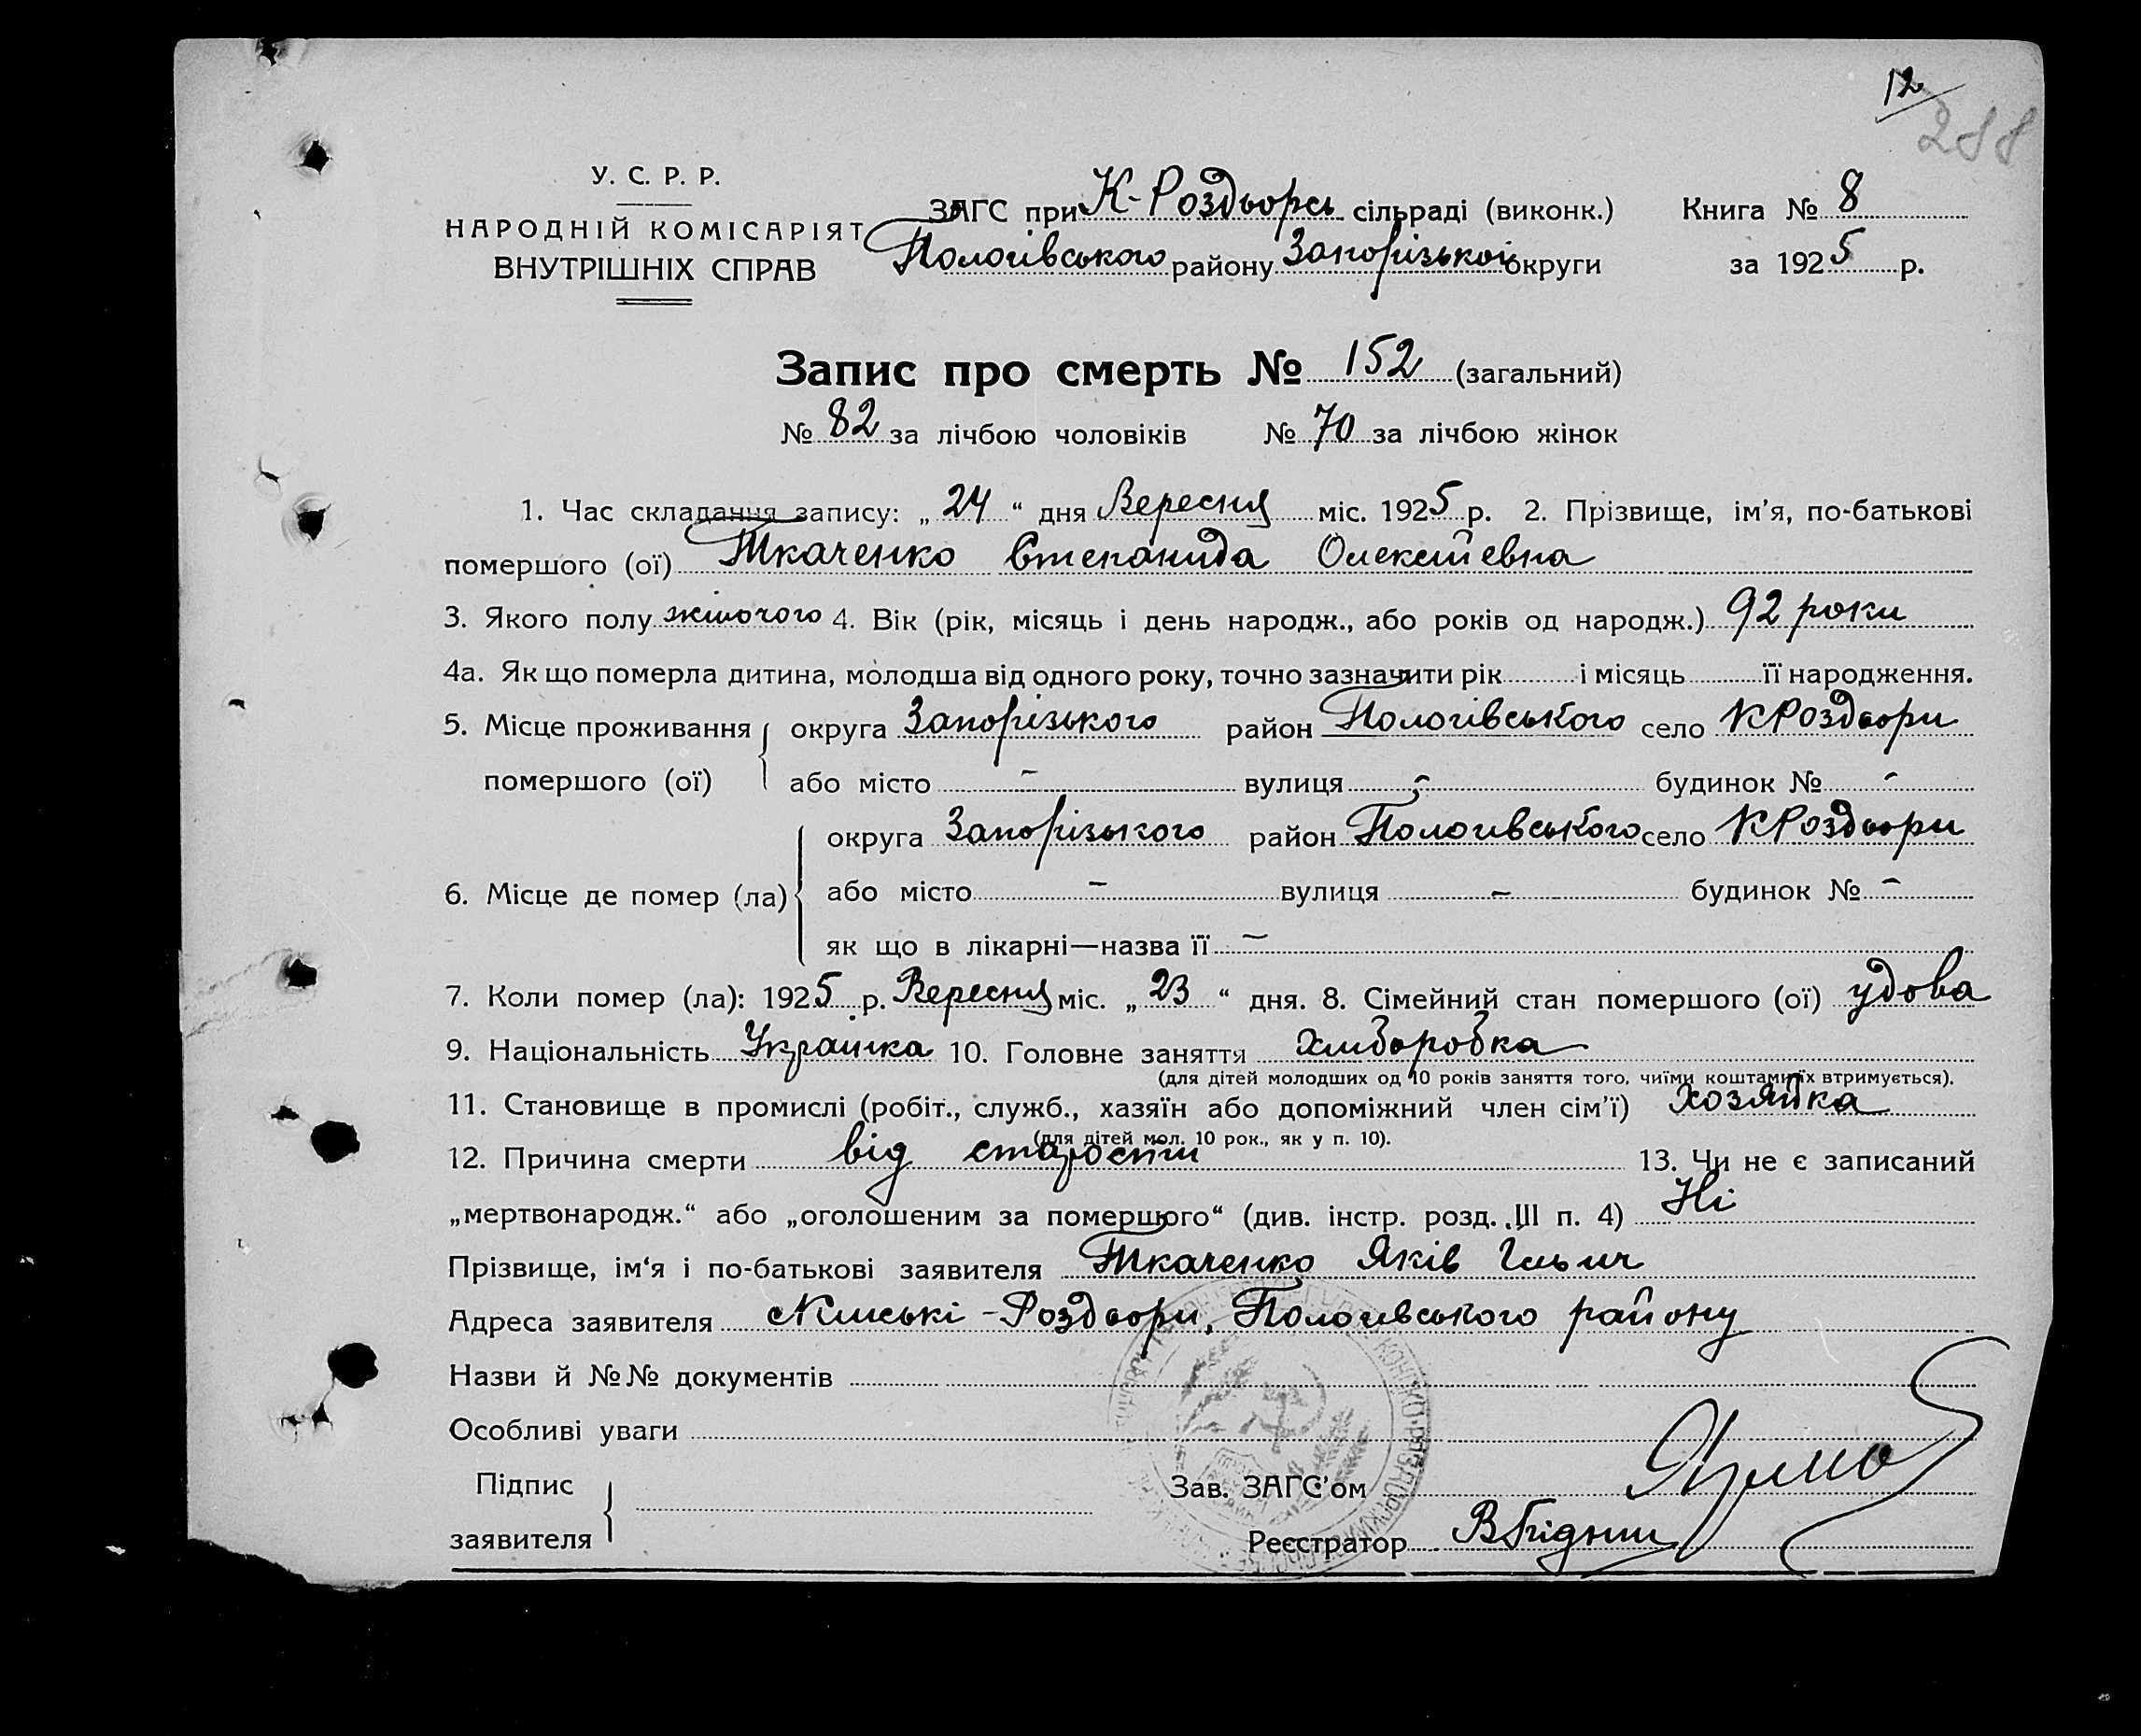 12
288
У. С. Р. Р.
НАРОДНІЙ КОМІСАРІЯТ
ВНУТРІШНІХ СПРАВ
ЗАГС при К-Роздорсь сільраді (виконк.)
Пологівського району Запорізької округи
Книга № 8
за 1925 р.
Запис про смерть № 152 (загальний)
№ 82 за лічбою чоловіків № 70 за лічбою жінок
1. Час складання запису: „ 24 “ дня Вересня міс. 1925 р. 2. Прізвище, ім'я, по-батькові
помершого (ої) Ткаченко Степанида Олексіевна
3. Якого полу жіночого 4. Вік (рік, місяць і день народж., або років од народж.) 92 роки
4а. Як що померла дитина, молодша від одного року, точно зазначити рік і місяць її народження.
5. Місце проживання округа Запорізького район Пологівського село КРоздори
помершого (ої) або місто - вулиця - будинок № -
округа Запорізького район Пологивського село КРоздори
6. Місце де помер (ла) або місто - вулиця - будинок № -
як що в лікарні—назва її -
7. Коли помер (ла): 1925 р. Вересня міс. „ 23 “ дня. 8. Сімейний стан помершого (ої) удова
9. Національність Українка 10. Головне заняття Хліборобка
(для дітей молодших од 10 років заняття того, чиїми коштами їх втримується).
11. Становище в промислі (робіт., служб., хазяїн або допоміжний член сім'ї) Хозяйка
(для дітей мол. 10 рок., як у п. 10).
12. Причина смерти від старости 13. Чи не є записаний
„мертвонародж.“ або „оголошеним за помершого“ (див. інстр. розд. III п. 4) Ні
Прізвище, ім‘я і по-батькові заявителя Ткаченко Яків Ільич
Адреса заявителя Кінські-Роздори, Пологивського району
Назви й №№ документів
Особливі уваги
Підпис
заявителя
Зав. ЗАГС'ом
Реєстратор